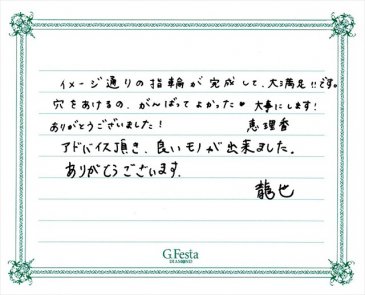 イメージ通りの指輪が完成して、大満足!!です。
穴をあけるの、がんばってよかった♥ 大事にします!
ありがとうございました! 恵理香
アドバイス頂き、良いモノが出来ました。
ありがとうございます。
龍也
G.Festa
DIAMOND